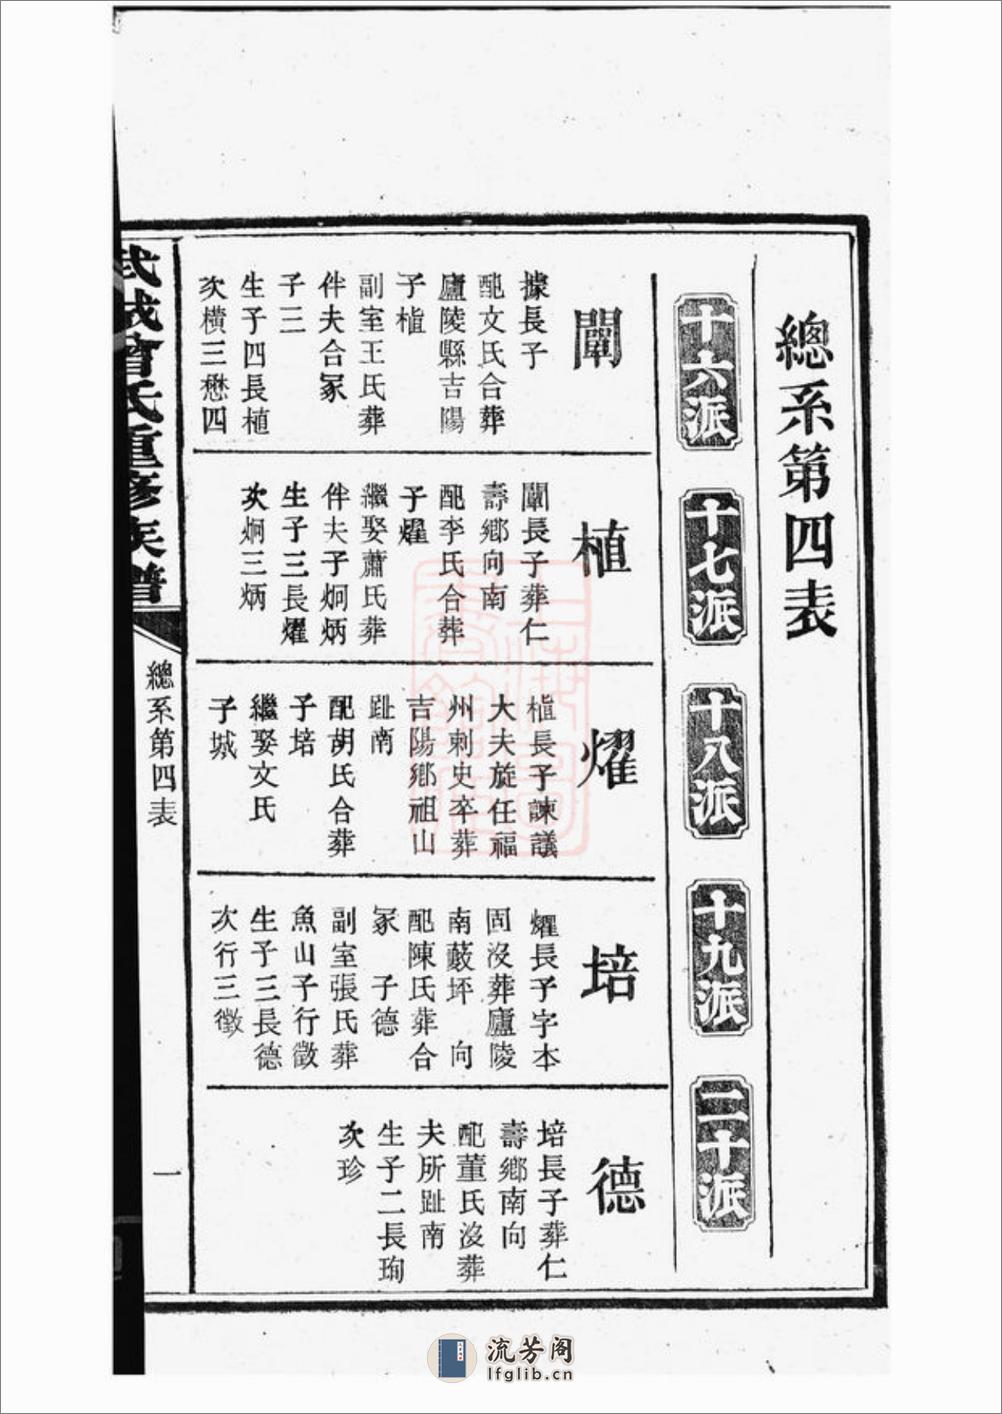 總系第四表
十六派
十七派
十八派
十九派
二十派
闡
據長子
配文氏合葬
廬陵縣吉陽
子植
副室王氏葬
伴夫合冢
子三
生子四長植
次橫三懋四
植
闡長子葬仁
壽鄉向南
配李氏合葬
子燿
繼娶蕭氏葬
伴夫子炯炳
生子三長燿
次炯三炳
燿
植長子諫議
大夫旋任福
州刺史卒葬
吉陽鄉祖山
趾南
配胡氏合葬
子培
繼娶文氏
子城
培
燿長子字本
固沒葬廬陵
南蔽坪 向
配陳氏葬合
冢 子德
副室張氏葬
魚山子行徵
生子三長德
次行三徵
德
培長子葬仁
壽鄉南向
配董氏沒葬
夫所趾南
生子二長珣
次珍
武城曾氏重修族譜
總系第四表
一
流芳阁
lfglib.cn